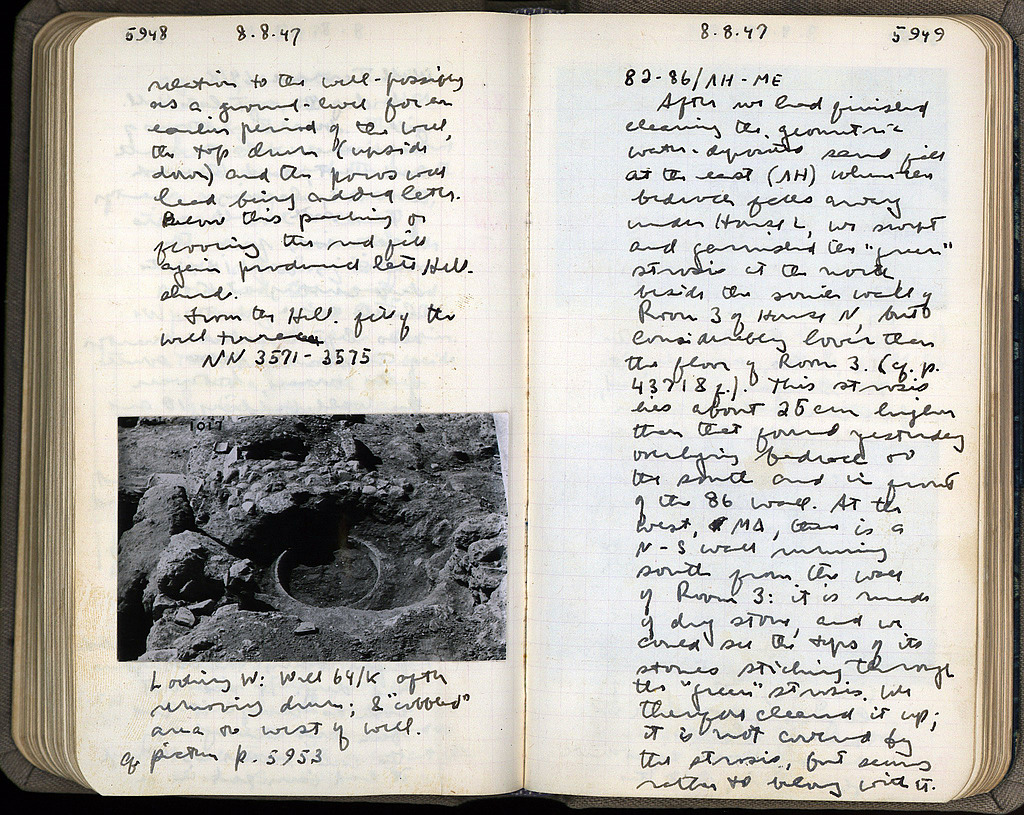 5948 8.8.47
relation to the well - possibly
as a ground-level for an
earlier period of the well,
the top drum (upside
down) and the poros well
head being added later.
Below this packing or
flooring the red fill
again produced late Hell.
sherds.
From the Hell. fill of the
well
NN 3571 - 3575
1017
Looking W: Well 64/K after
removing drum; & "cobbled"
area to west of well.
cf picture p. 5953
8.8.47 5949
82-86/ΛH-ME
After we had finished
cleaning the geometric
water-deposited sand fill
at the east (ΛH) where
bedrock falls away
under House L, we swept
and garnished the "green"
strosis at the north
beside the south wall of
Room 3 of House N, but
considerably lower than
the floor of Room 3. (cf. p.
4371 8 f.). This strosis
lies about 25 cm higher
than that found yesterday
overlying bedrock to
the south and in front
of the 86 wall. At the
west, MΔ, there is a
N-S wall running
south from the wall
of Room 3: it is made
of dry stone, and we
could see the tops of its
stones sticking through
the "green" strosis. We
therefore cleaned it up;
it is not covered by
the strosis, but seems
rather to belong with it.